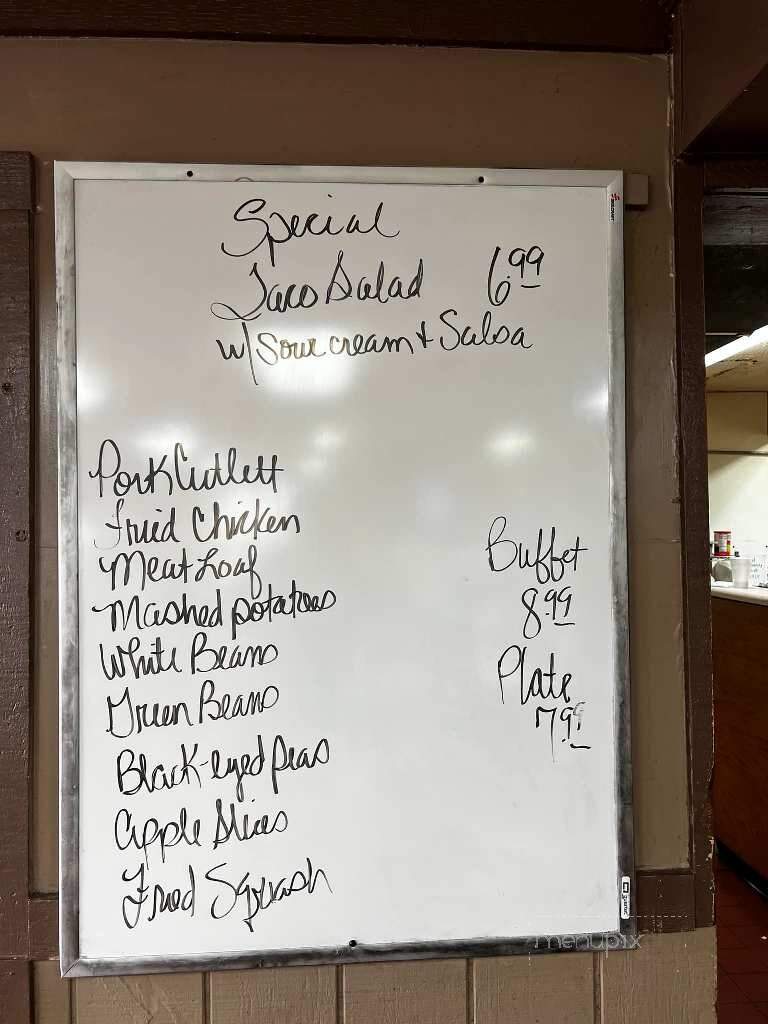 Special
Taco Salad 6.99
w/ Sour cream & Salsa
Pork Cutlett
Fried Chicken
Meat Loaf
Mashed potatoes
White Beans
Green Beans
Black-eyed peas
Apple Slices
Fried Squash
Buffet
8.99
Plate
7.99
menupix